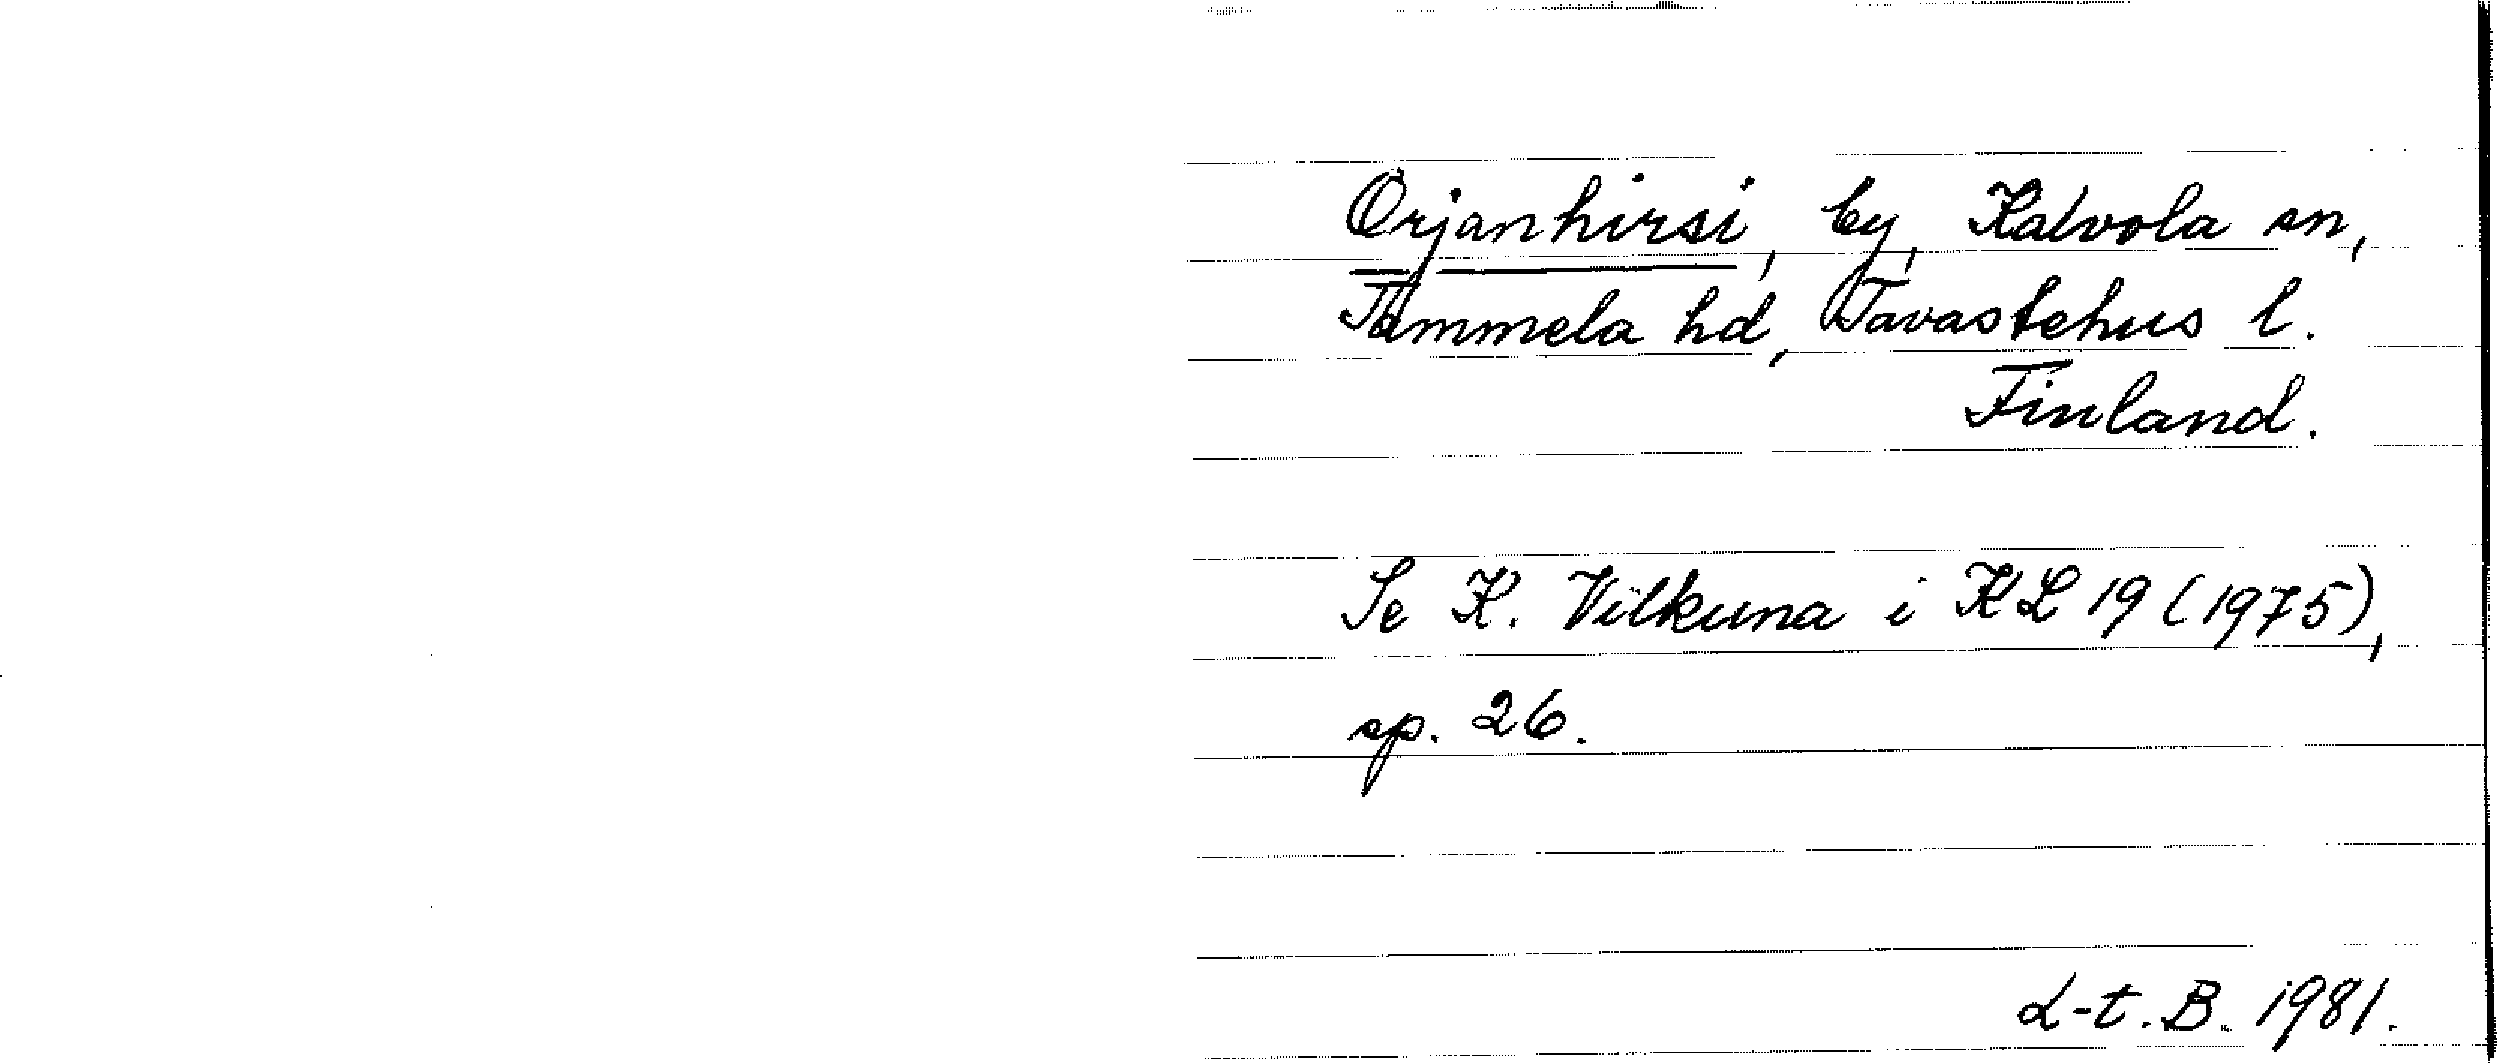 Orjanhirsi, by, Kalvola sn,
Tammela hd, Tavastehus l.
Finland.
Se K. Vilkuna i KL 19 (1975),
sp. 26.
L-t. B. 1981.